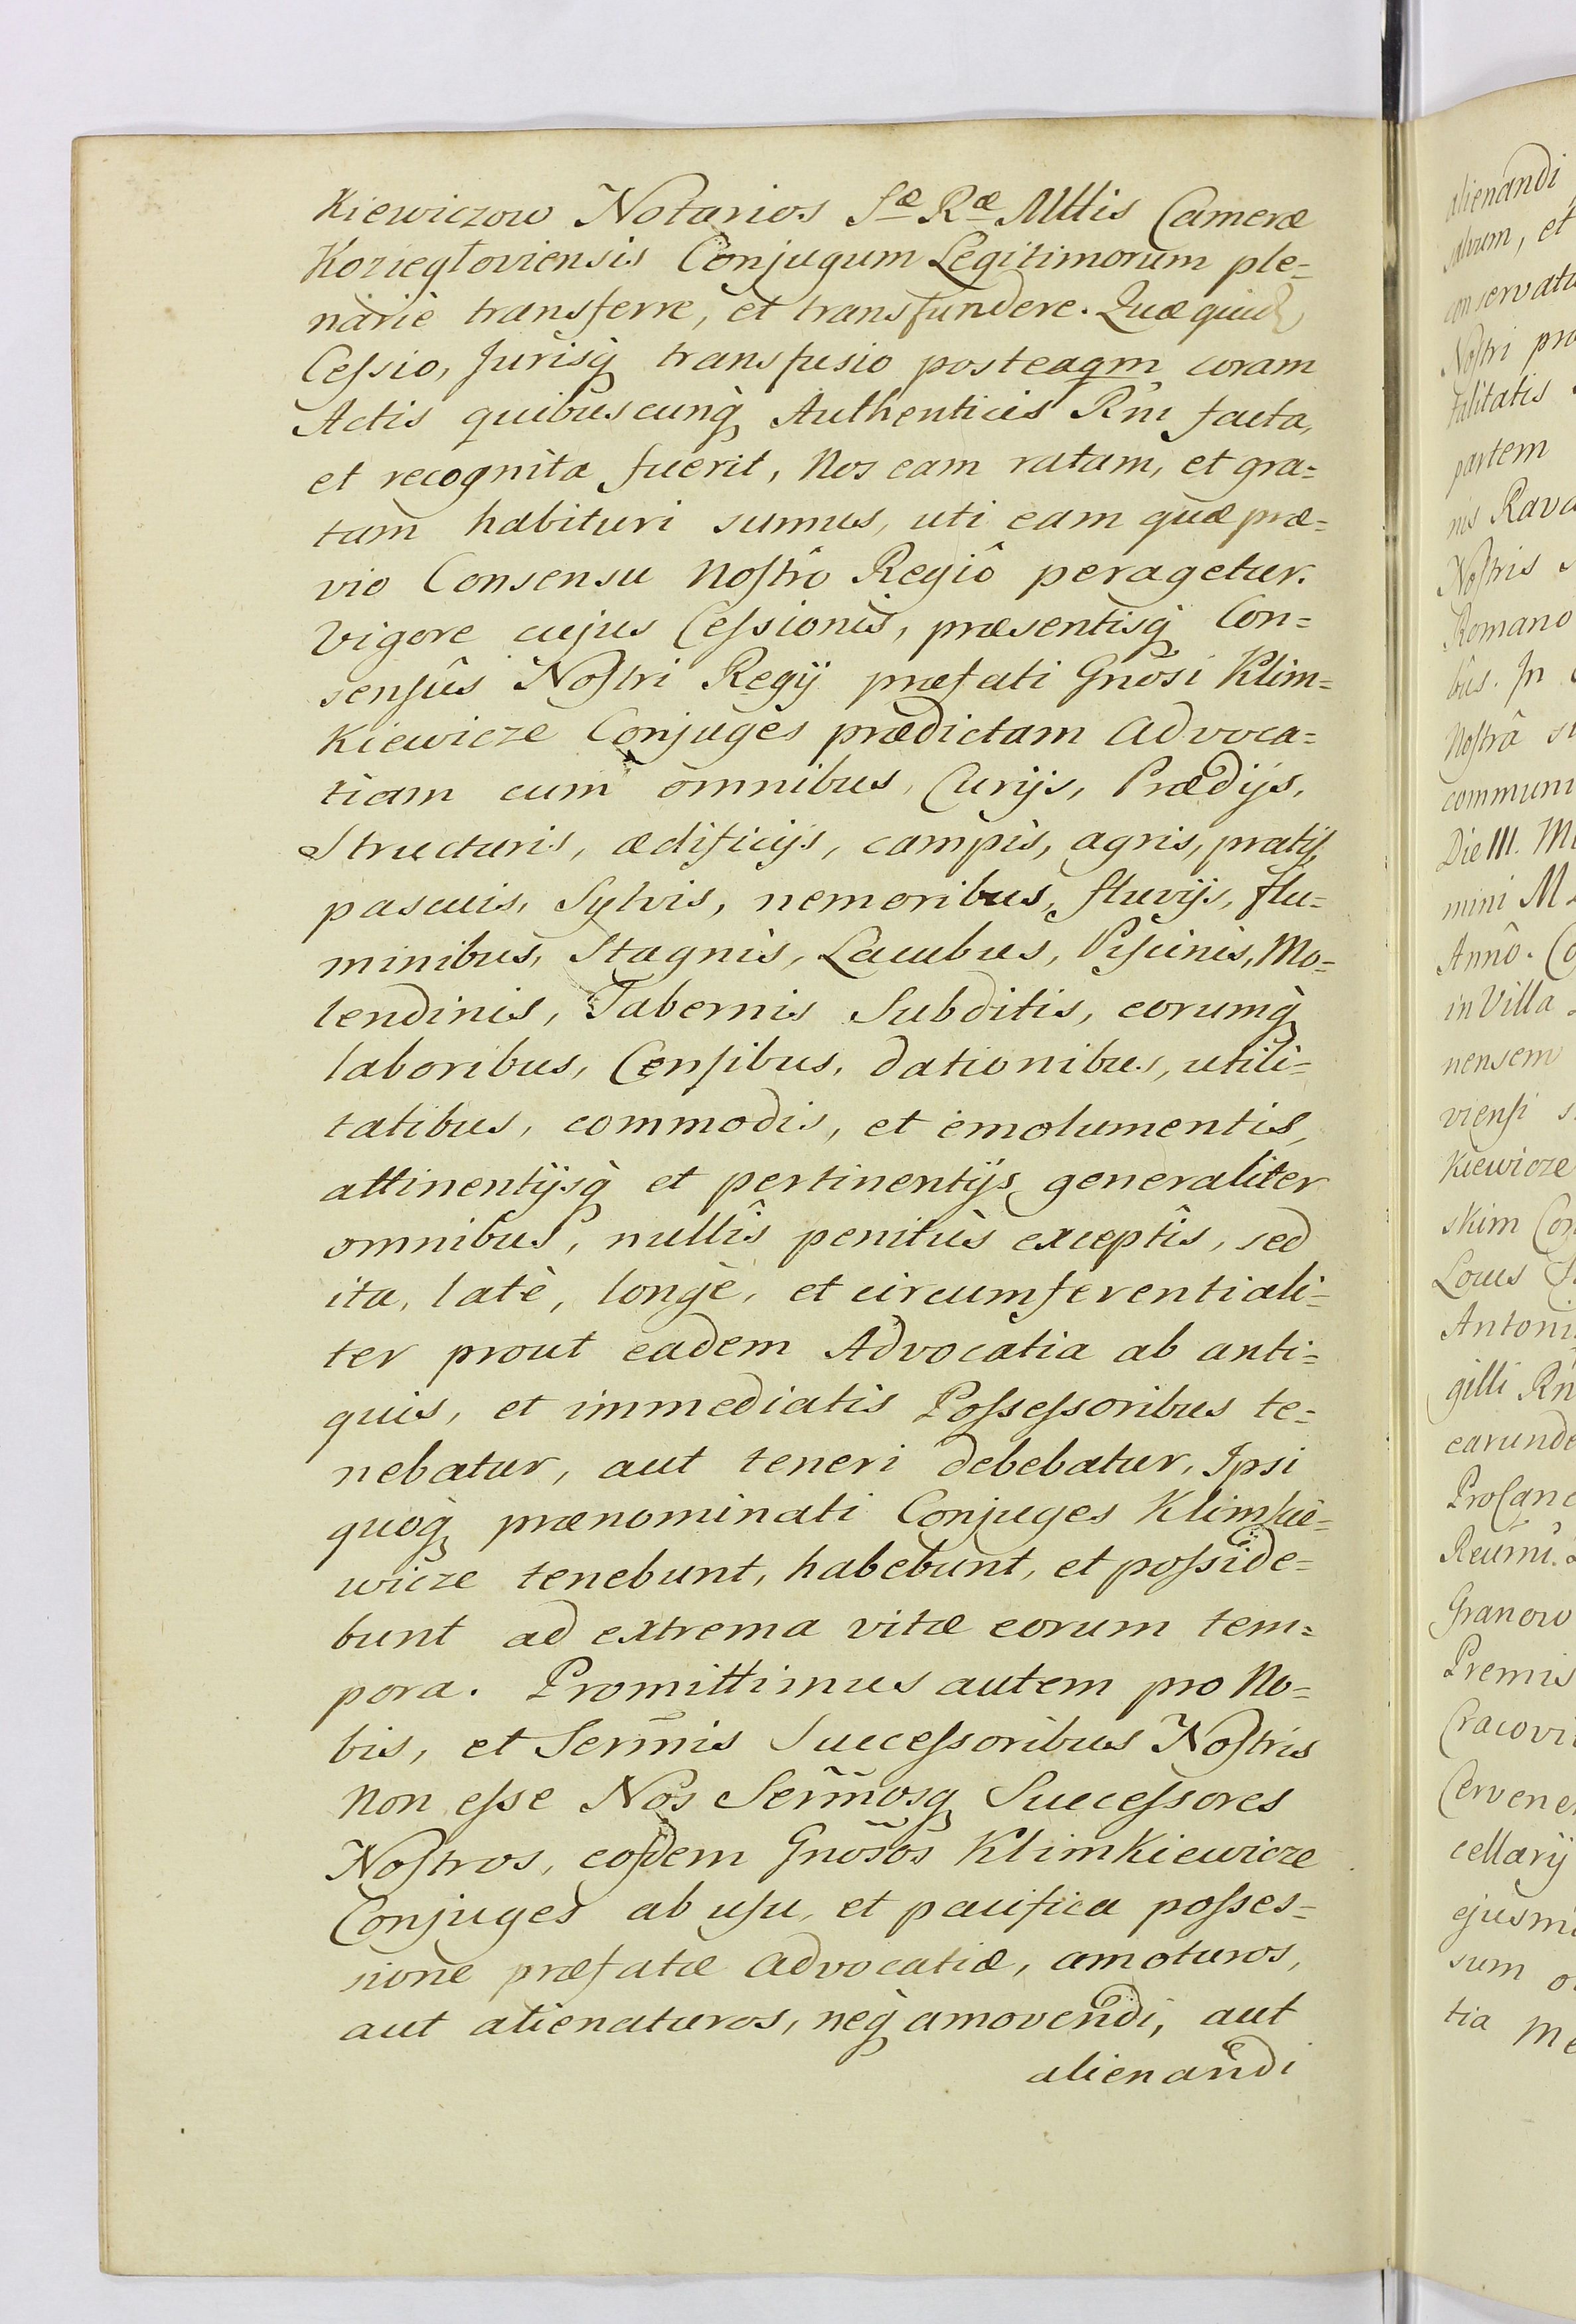 Kiewiczow Notarios Sæ Ræ Mttis Cameræ
Koziegłoviensis Conjugum Legitimorum ple=
nariè transferre, et transfundere. Quæquid
Cessio, Jurisq́ transfusio posteaqm coram
Actis quibuscunq́ Authenticis Rñi facta,
et recognita fuerit, Nos eam ratam, et gra=
tam habituri sumus, uti eam quæ præ=
vio Consensu Nostrô Regiô peragetur.
Vigore cujus Cessionis, præsentisq́ Con=
sensûs Nostri Regij præfati Gnosi Klim=
Kiewicze Conjuges prædictam Advoca=
tiam cum omnibus, Curijs, Prædijs,
Structuris, ædificijs, campis, agris, pratis,
pascuis, Sylvis, nemoribus, fluvijs, flu=
minibus, Stagnis, Lacubus, Piscinis, Mo=
lendinis, Tabernis Subditis, eorumq́
laboribus, Censibus, dationibus, utili=
tatibus, commodis, et emolumentis,
attinentijsq́ et pertinentijs generaliter
omnibus, nullîs penitùs exceptîs, sed
ita, latè, longè, et circumferentiali=
ter prout eadem Advocatia ab anti=
quis, et immediatis Possessoribus te=
nebatur, aut teneri debebatur, Ipsi
quoq́ prænominati Conjuges Klimkie=
wicze tenebunt, habebunt, et posside=
bunt ad extrema vitæ eorum tem=
pora. Promittimus autem pro No=
bis, et Serm̃is Successoribus Nostris
Non esse Nos Serm̃osq Successores
Nostros, eosdem Gnõsos Klimkiewicze
Conjuges ab usu, et pacifica posses=
sione præfatæ Advocatiæ, amoturos,
aut alienaturos, neq́ amovendi, aut
alienandi
alienandi
salvum, et
conservatu
Nostri pro
talitatis
partem
nis Rava
Nostris
Romano
bûs. In
Nostrâ
communi
Die III. M
mini M
Annô. Co
in Villa
nensem
viensi
Kiewicze
skim Con
Locus
Antoni
gilli Rn
earunde
ProCanc
Reumi.
Granow
Premis
Cracovi
Cervene
cellarij
ejusm
sum
tia Me